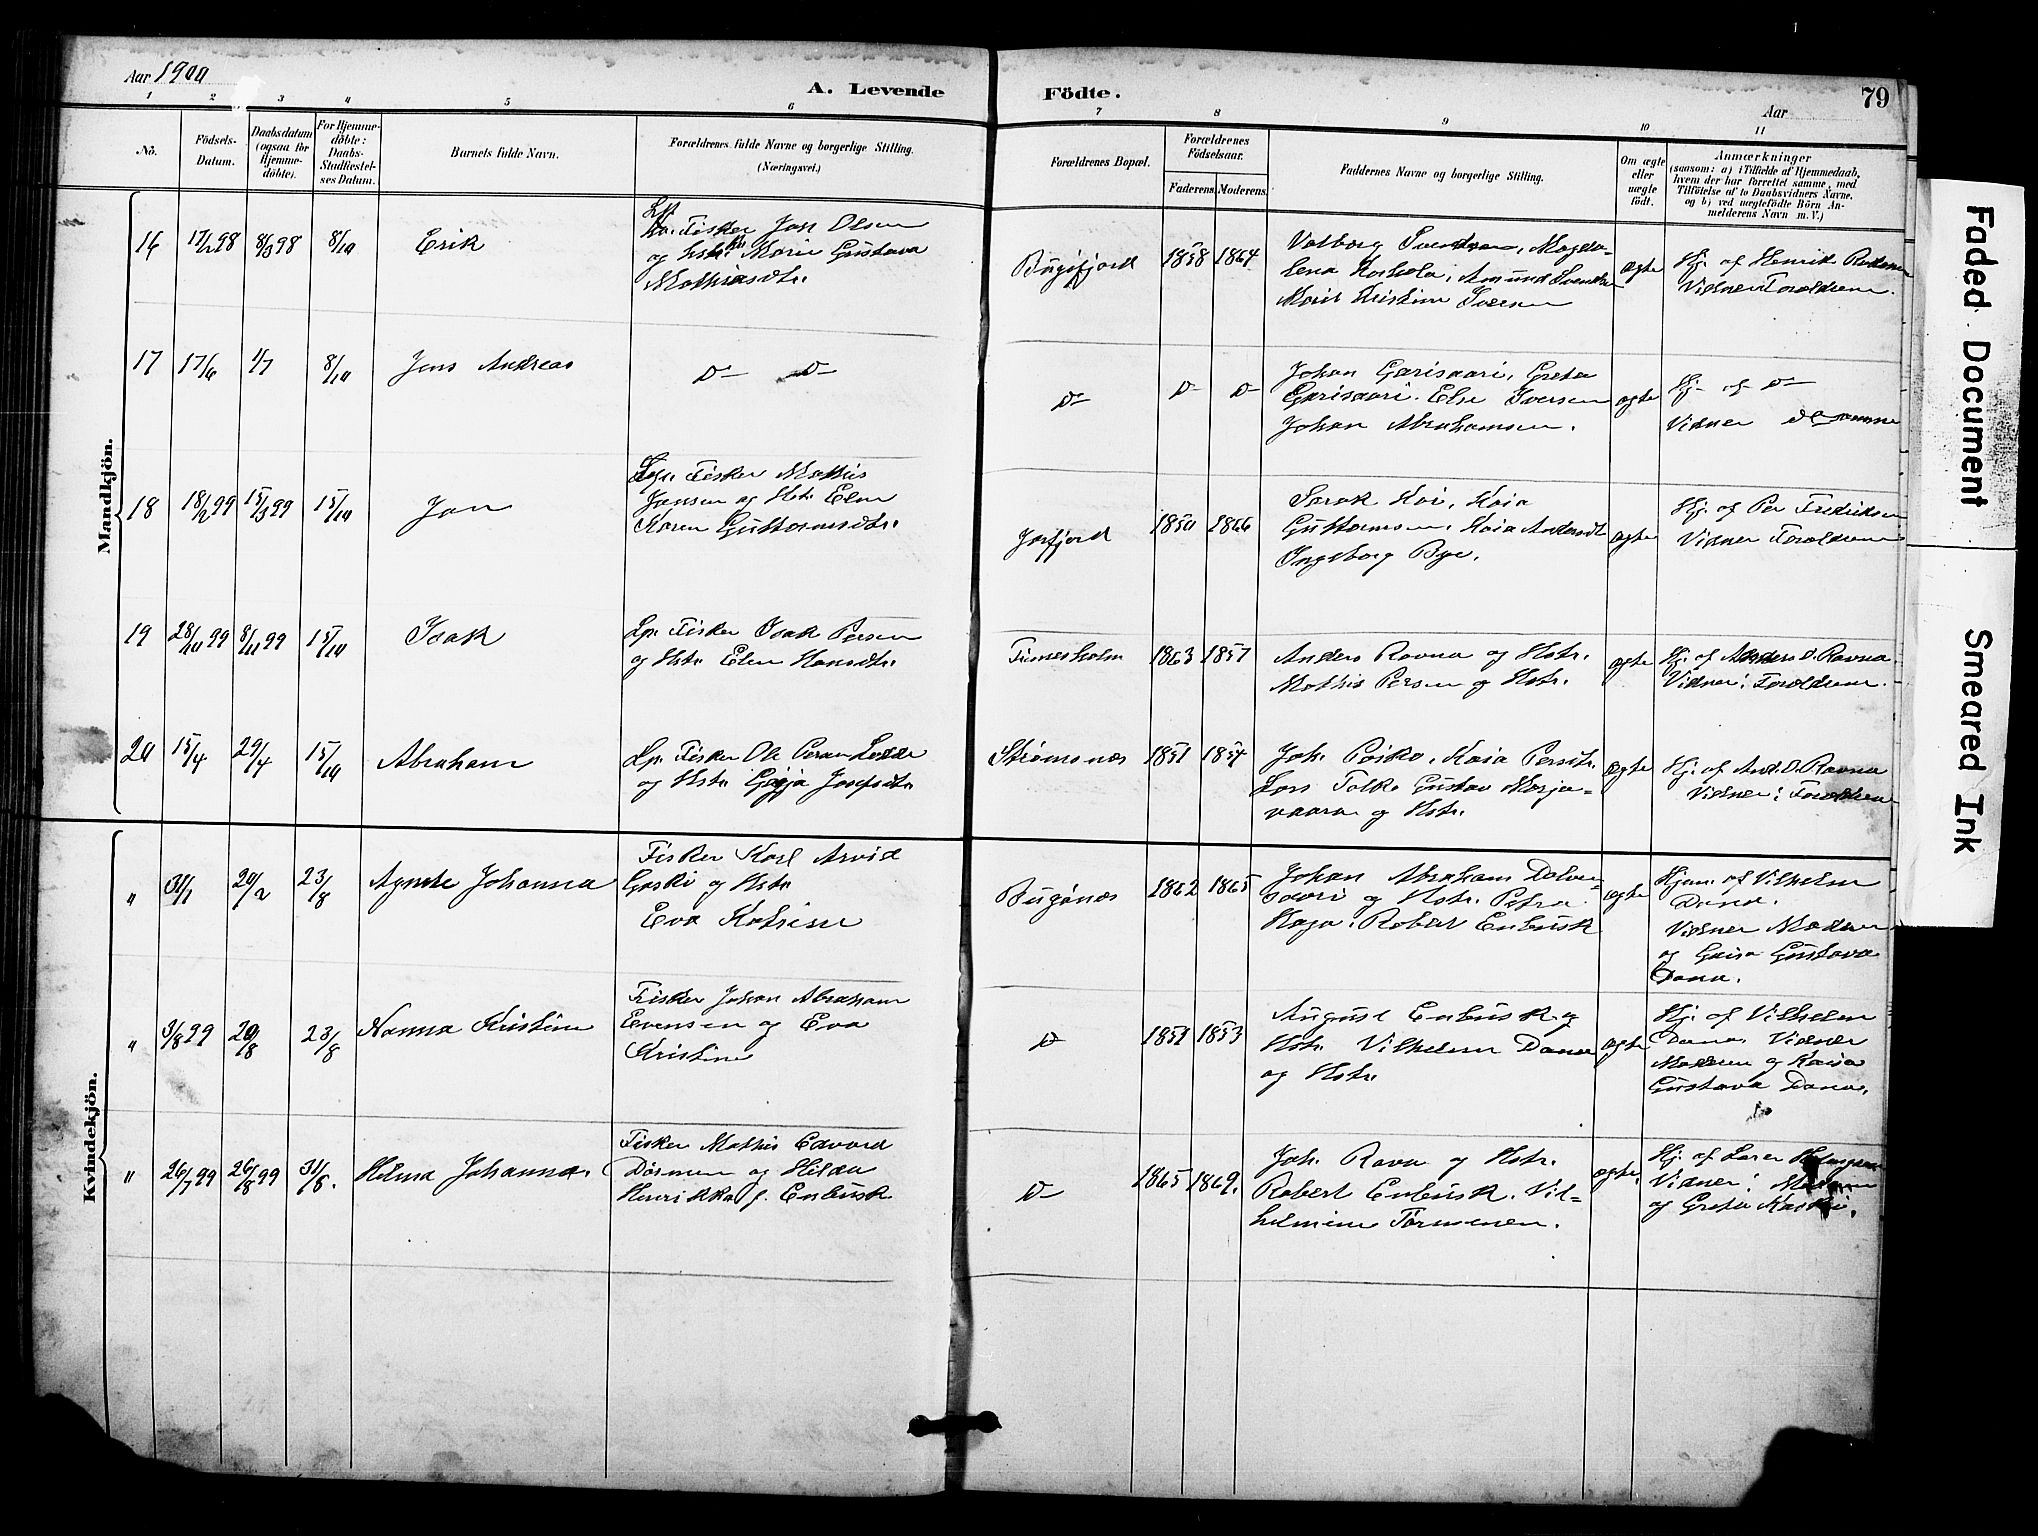 Aar 1900
A. Levende
Födte.
Aar
79
1 2 3 4 5 6 7 8 9 10 11
No.
Födsels-
Datum.
Daabsdatum
(ogsaa for
Hjemme-
döbte).
For Hjemme-
döbte:
Daabs-
Stadfæstel-
ses Datum.
Barnets fulde Navn.
Forældrenes fulde Navne og borgerlige Stilling.
(Næringsvei.)
Forældrenes Bopæl.
Forældrenes
Födselsaar.
Faderens. Moderens.
Faddernes Navne og borgerlige Stilling.
Om ægte
eller
uægte
födt.
Anmærkninger
(saasom: a) i Tilfælde af Hjemmedaab,
hvem der har forrettet samme, med
Tilföielse af to Daabsvidners Navne,
og b) ved uægtefödte Börn An-
melderens Navn m. V.)
Mandkjön.
16 17/2 98 8/3 98 8/10 Erik
Fisker Jon Olsen
og Hstr. Marie Gustava
Mathiasdtr.
Bugøfjord 1858 1864
Valborg Svendsen, Magda-
lena, Amund Svendsen
Marit Kristine Iversen
ægte
Hj. af Henrik
Vidner Forældrene.
17 17/6 1/7 8/10 Jens Andreas
D- D-
D- D- D-
Johan Garisaari, Greta
Garisaari. Else Iversen
Johan Abrahamsen.
ægte
Hj. af D-
Vidner de samme
18 18/2 99 15/3 99 15/10 Jon
Lp. Fisker Mathis
Jonsen og Hstr. Elen
Karen Guttormsdtr.
Jarfjord 1850 1866
Sarak Koi, Kaia
Guttormsen, Kaia Andersdt
Ingeborg Bye.
ægte
Hj. af Per Fredriksen
Vidner Forældrene
19 28/10 99 8/11 99 15/10 Isak
Lp. Fisker Isak Persen
og Hstr. Elen Hansdtr.
1863 1857
Anders Ravna og Hstr.
Mathis Persen og Hstr.
ægte
Hj. af Anders O. Ravna.
Vidner: Forældrene.
20 15/4 29/4 15/10 Abraham
Lp. Fisker Ole Persen
og Hstr. Josefsdtr.
Strømsnæs 1851 1854
Joh. Pasko, Kaia Persdtr.
Lars Falk. Gustav Marja-
vaara og Hstr.
ægte
Hj. af And. O. Ravna
Vidner: Forældrene
Kvindekjön.
" 31/1 20/2 23/8 Agnete Johanna
Fisker Karl Arvid
Gaski og Hstr
Eva Katrine
Bugønæs 1862 1865
Johan Abraham
og Hstr. Petra
Haga. Robert Enbusk
ægte
Hjem. af Vilhelm
Dana.
Vidner Moderen
og Gustava
Dana.
" 3/8 99 20/8 23/8 Nanna Kristine
Fisker Johan Abraham
Evensen og Eva
Kristine
D- 1851 1853
August Enbusk og
Hstr. Vilhelm Dana
og Hstr.
ægte
Hj. af Vilhelm
Dana. Vidner
Moderen og Kaisa
Gustava Dana.
" 26/7 99 26/8 99 31/8. Hilma Johanna.
Fisker Mathis Edvard
og Hilda
Henrikka f. Enbusk
D- 1865 1869.
Joh. Ravn og Hstr.
Robert Enbusk. Vil-
helmine
ægte.
Hj. af Lærer
Vidner: Moderen
og Greta
Faded Document
Smeared Ink